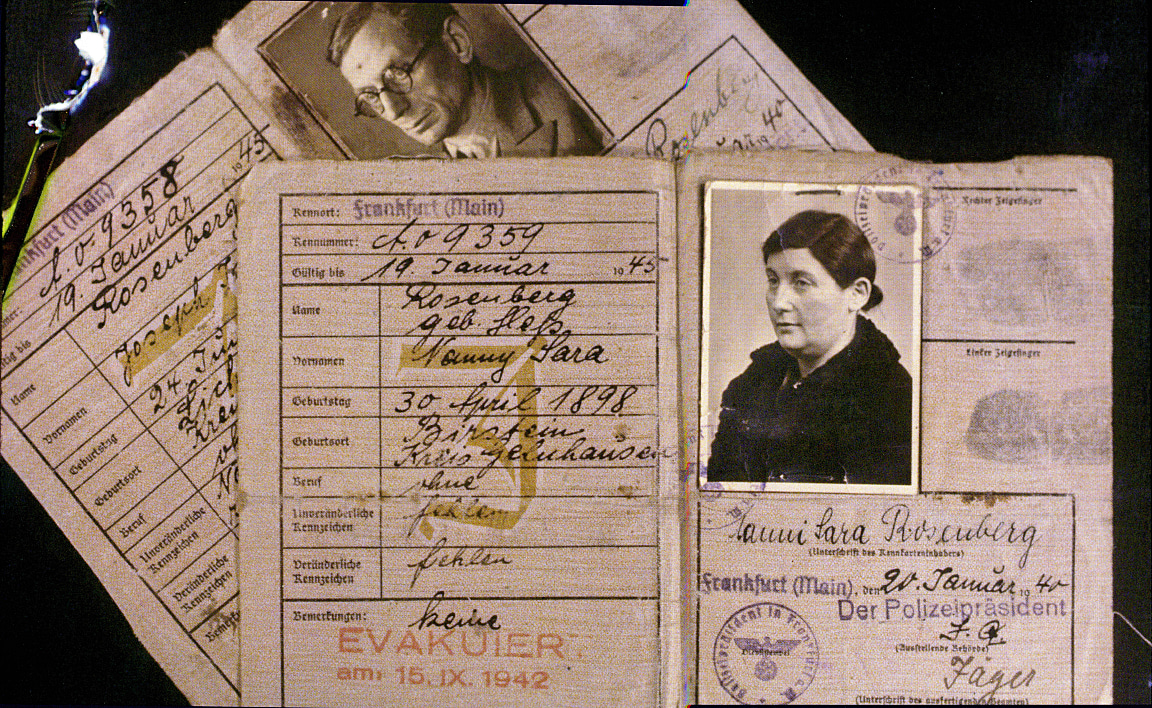 Frankfurt (Main)
A. 0. 9358
19. Januar 1945
Rosenberg
Joseph
24. Jun
Name
Vornamen
Geburtstag
Geburtsort
Beruf
Unveränderliche
Kennzeichen
Veränderliche
Kennzeichen
Rosenberg
40
Kennort: Frankfurt (Main)
Kennummer: A. 0 9359
Gültig bis 19. Januar 1945
Name Rosenberg
geb. Heß
Vornamen Nanny Sara
Geburtstag 30 April 1898
Geburtsort Birstein
Kreis Gelnhausen
Beruf ohne
Unveränderliche
Kennzeichen fehlen
Veränderliche
Kennzeichen fehlen
Bemerkungen: keine
EVAKUIER
am: 15. IX. 1942
J
Rechter Zeigefinger
Linker Zeigefinger
Nanni Sara Rosenberg
(Unterschrift des Kennkarteninhabers)
Frankfurt (Main), den 20. Januar 1940
Der Polizeipräsident
(Ausstellende Behörde)
Jäger
(Unterschrift des ausfertigenden Beamten)